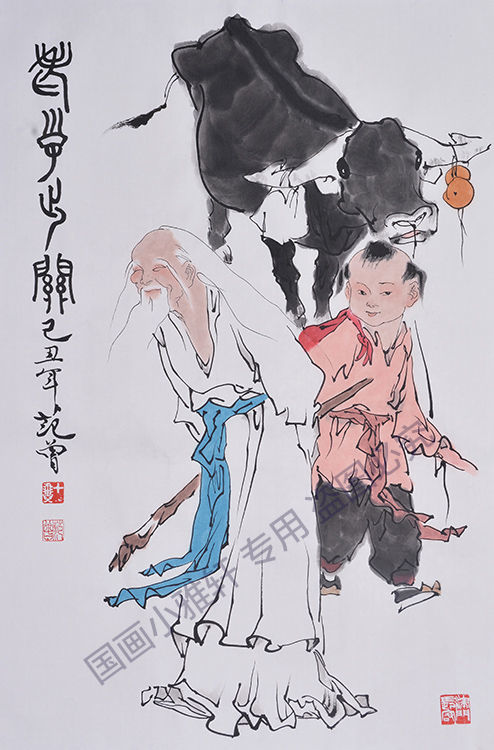 老子出關己丑年范曾
十翼
国画小雅轩 专用 盗图必究